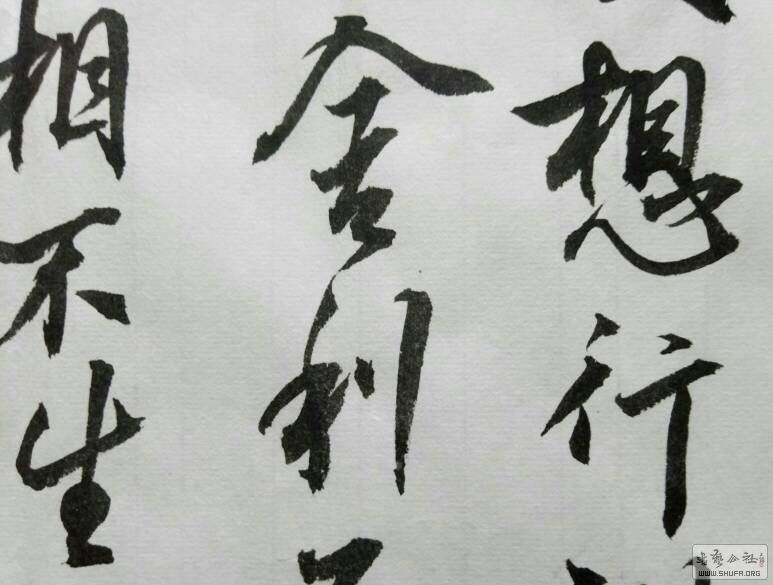 想行
舍利
相不生
WWW.SHUFA.ORG